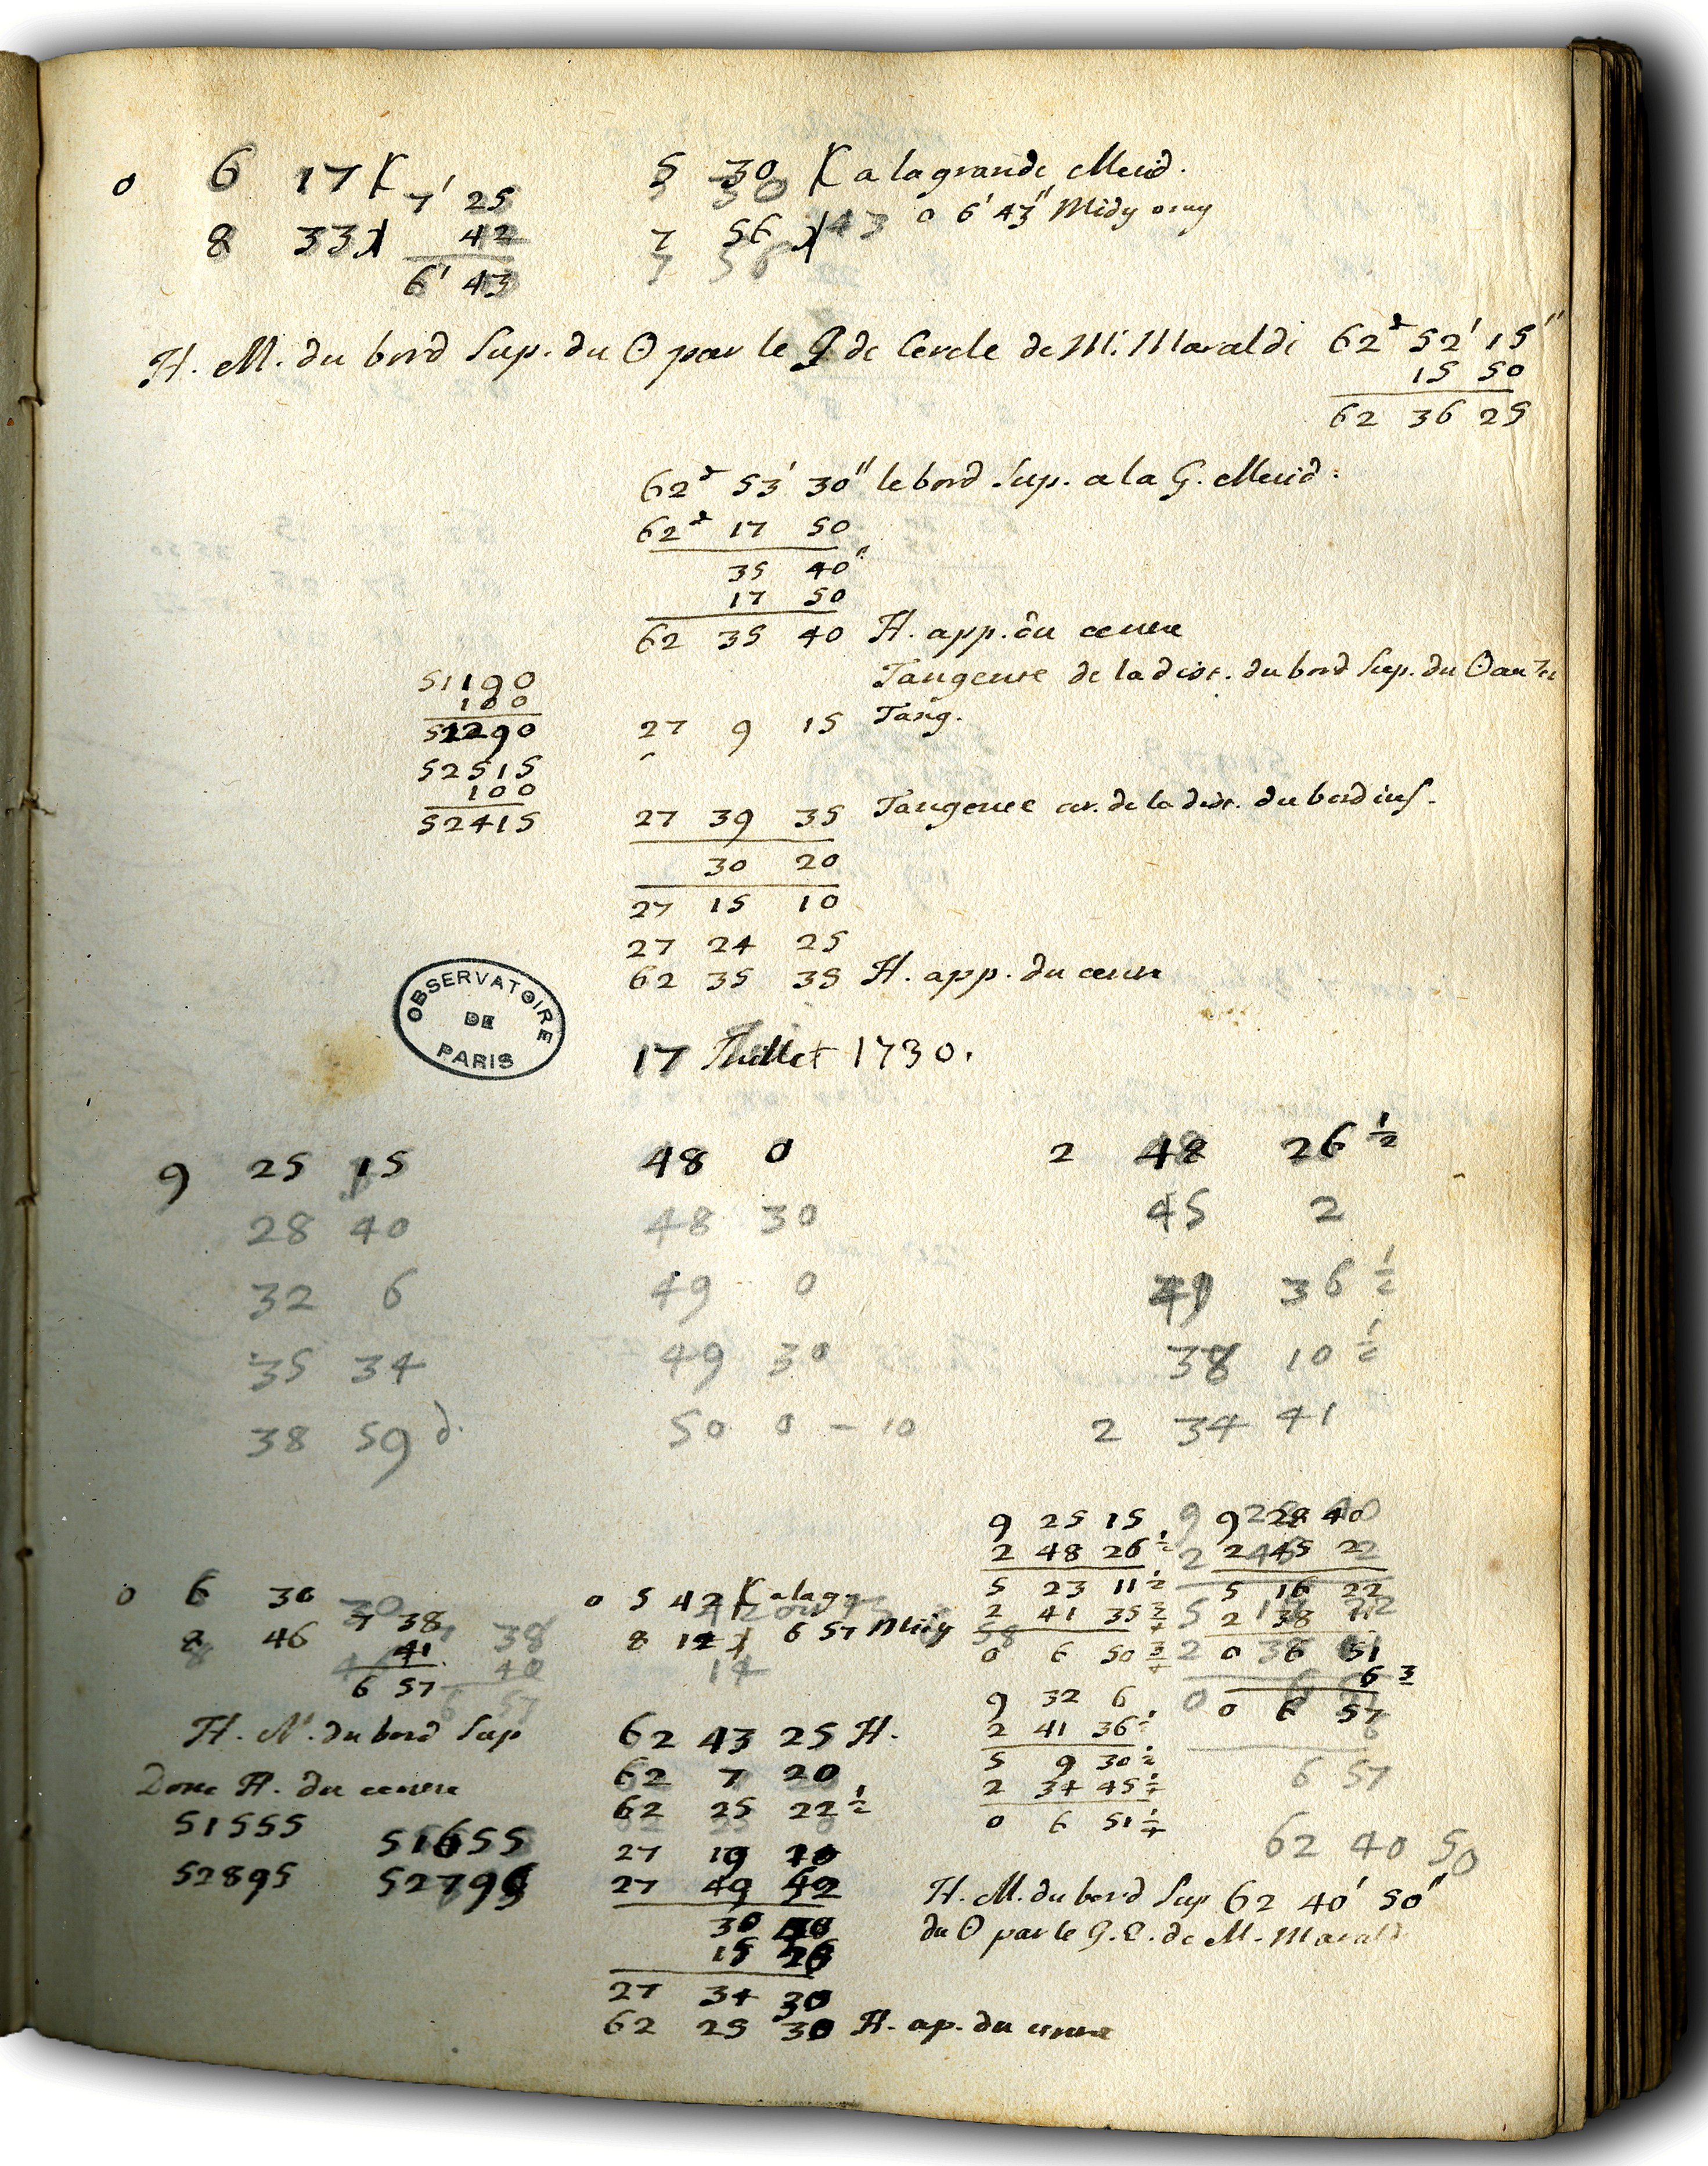 0 6 17 7' 25 5 30 a la grande Merid.
8 33 42 7 56 43 0 6' 43" Midy vray
6' 43
H. M. du bord Sup. du ☉ par le Q de Cercle de M. Maraldi 62d 52' 15"
15 50
62 36 25
62d 53' 30" le bord Sup. a la G. Merid.
62d 17 50
35 40"
17 50
62 35 40 H. app. du centre
Tangente de la dist. du bord Sup. du ☉ au
51190
100
52290 27 9 15 Tang.
52515
100
52415 27 39 35 Tangente de la dist. du bord inf.
30 20
27 15 10
27 24 25
62 35 35 H. app. du centre
OBSERVATOIRE DE PARIS
17 Juillet 1730.
9 25 15 48 0 2 48 26 1/2
28 40 48 30 45 2
32 6 49 0 41 36 1/2
35 34 49 30 38 10 1/2
38 59 d. 50 0 - 10 2 34 41
9 25 15 9 28 40
2 48 26 1/2 2 45 22
5 23 11 1/2 5 16 22
2 41 35 3/4 2 38 11
0 6 50 3/4 0 6 51
6 3
0 6 57
0 6 30 7 38 0 5 42 a la gr
8 46 41 8 12 6 57 Midy
6 57 14
9 32 6
2 41 36 1/2
5 9 30 1/2
2 34 45 1/4
0 6 51 1/4
6 57
H. M. du bord Sup 62 43 25 H.
Donc H. du centre 62 7 20
62 25 22 1/2
51555 51655 27 19 10
52895 52795 27 49 52
62 40 50
H. M. du bord Sup 62 40' 50"
du ☉ par le Q. C. de M. Marald
27 34 30
62 25 30 H. ap. du centre